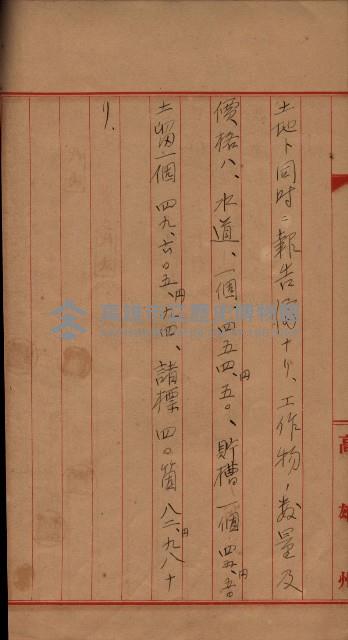 土地ト同時ニ報告済ナリ、工作物ノ数量及
價格ハ、水道、一個、四五四、五〇、貯槽一個四五、五〇
土留一個四九、六〇五、九四、諸標四〇箇八二、九八ナ
リ、
高雄州
高雄市立歷史博物館